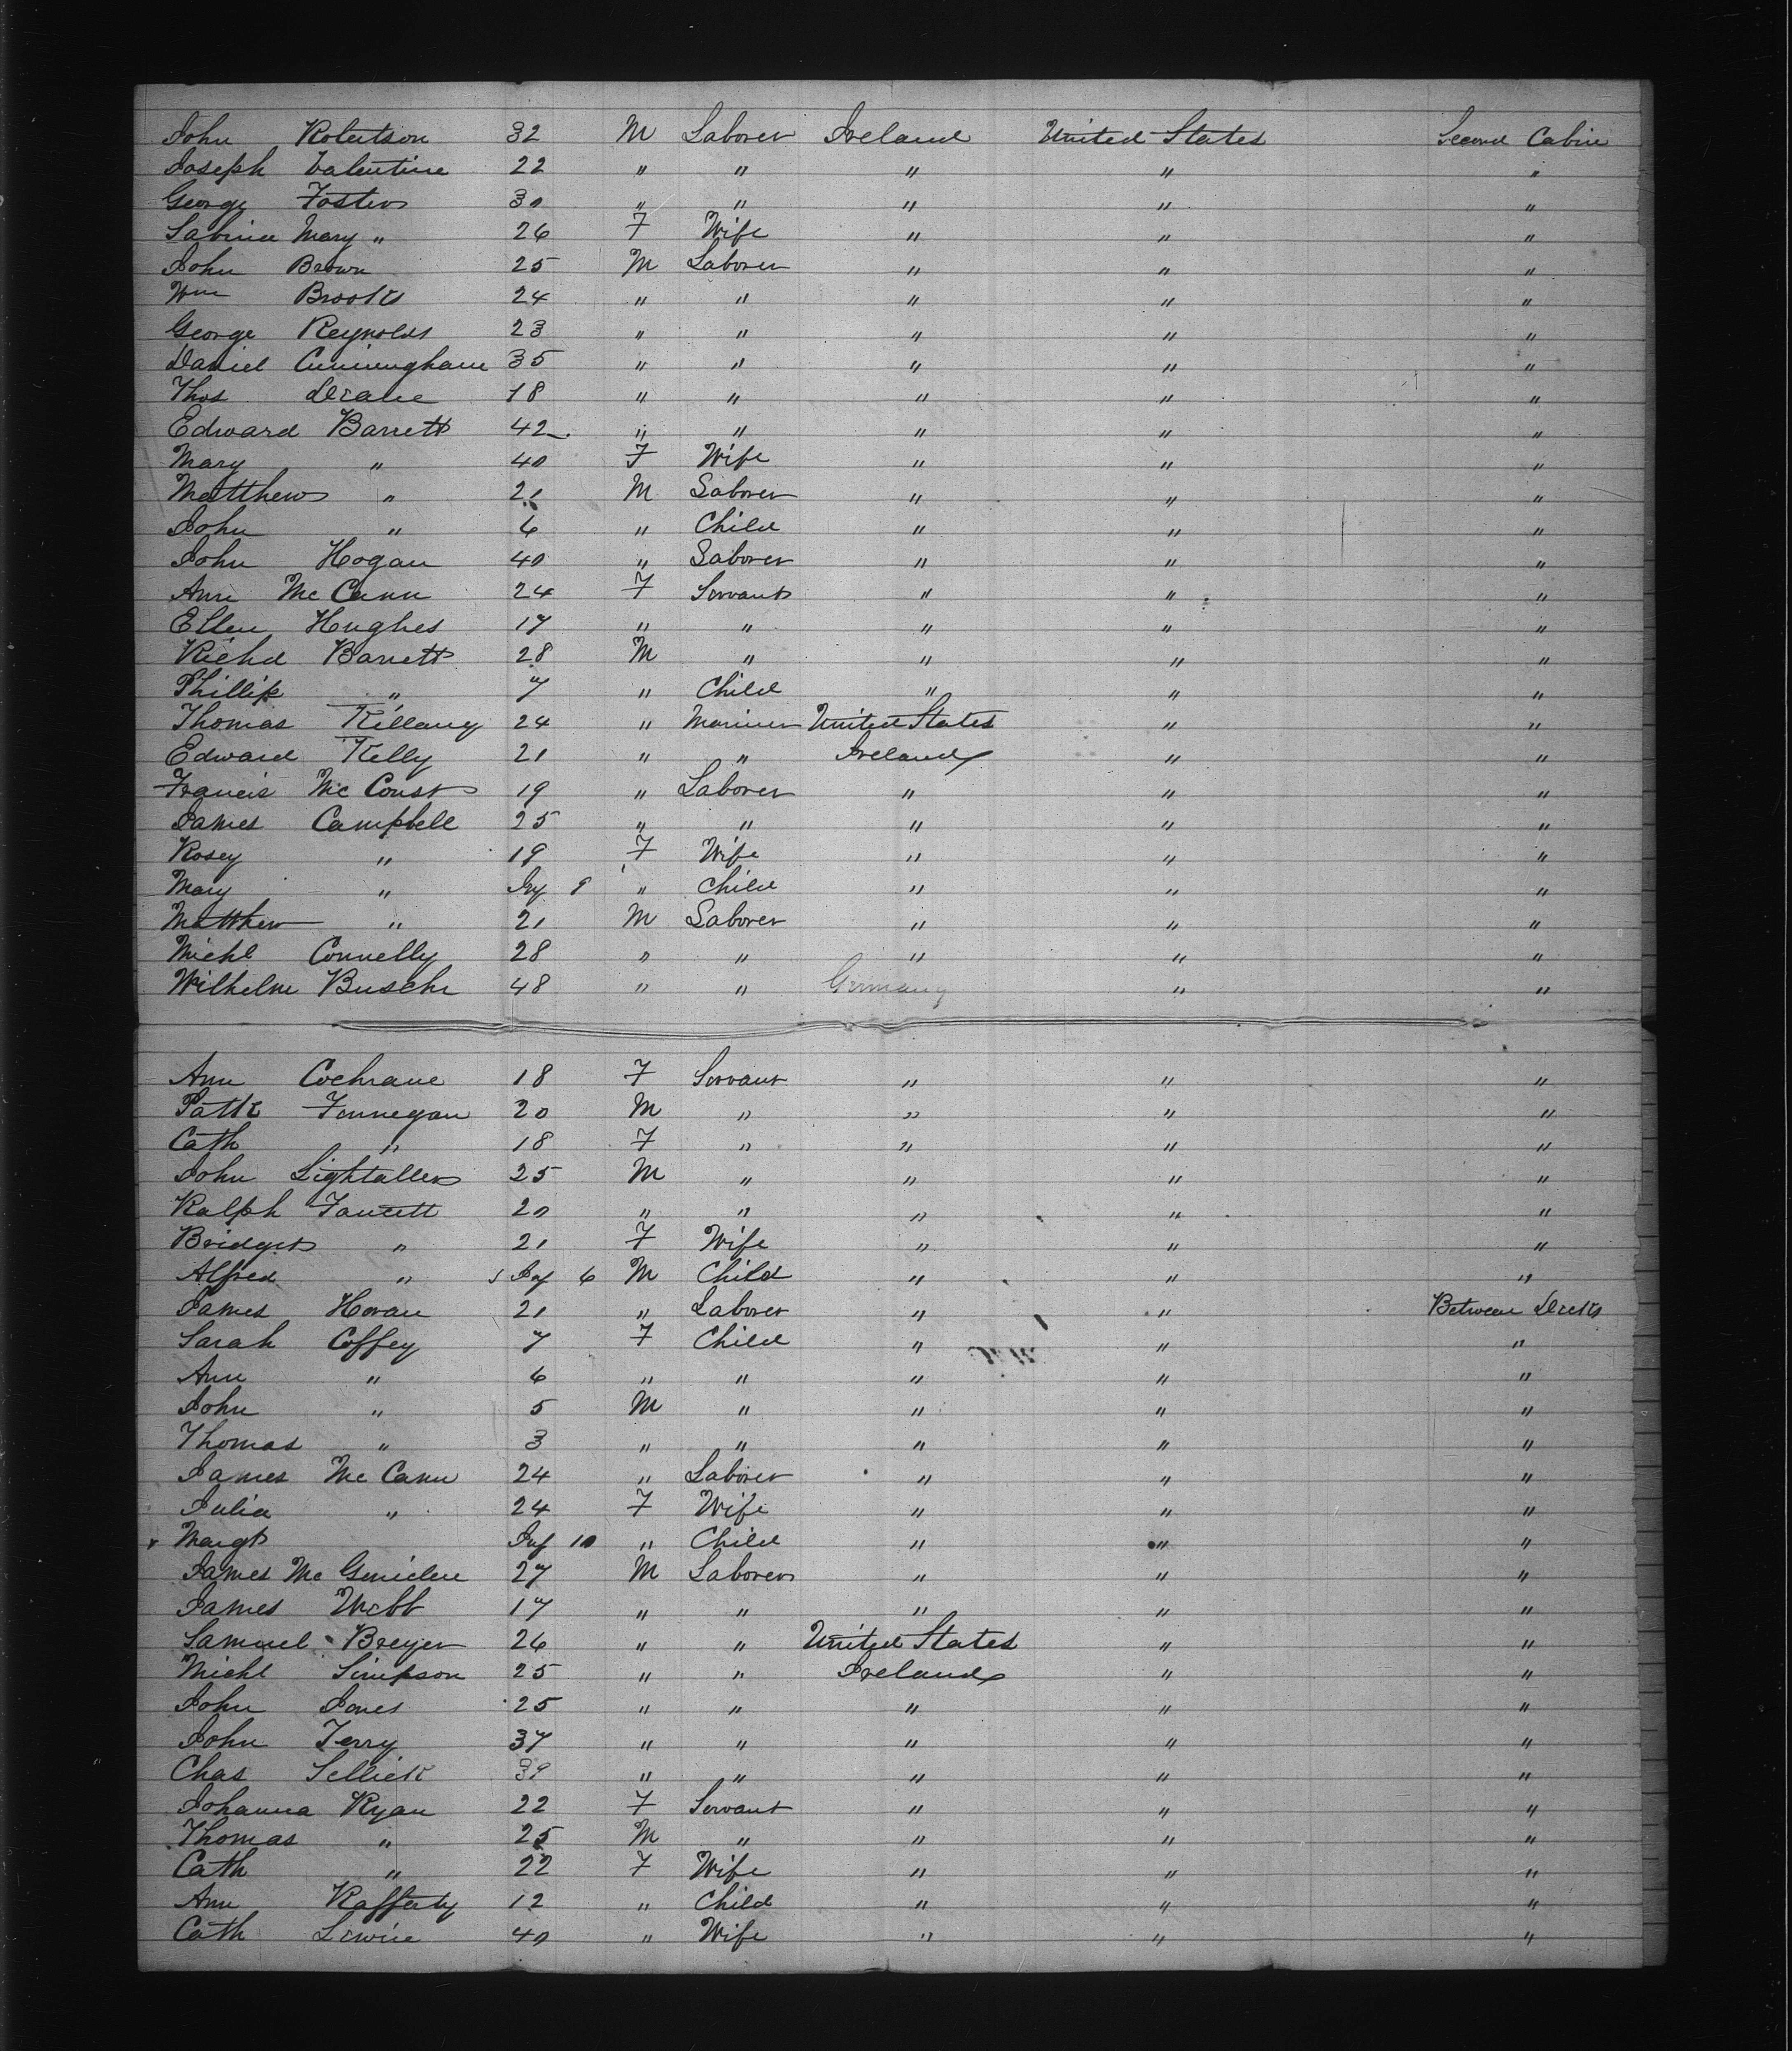 John Robertson 32 M Laborer Ireland United States Second Cabin
Joseph Valentine 22 " " " " "
George Foster 30 " " " " "
Sabina Mary " 26 F Wife " " "
John Brown 25 M Laborer " " "
Wm Brooks 24 " " " " "
George Reynolds 23 " " " " "
Daniel Cunningham 35 " " " " "
Thos Deane 18 " " " " "
Edward Barrett 42 " " " " "
Mary " 40 F Wife " " "
Matthew " 21 M Laborer " " "
John " 6 " Child " " "
John Hogan 40 " Laborer " " "
Ann McCann 24 F Servant " " "
Ellen Hughes 17 " " " " "
Richd Barrett 28 M " " " "
Phillip " 7 " Child " " "
Thomas Killany 24 " Mariner United States " "
Edward Kelly 21 " " Ireland " "
Francis McCourt 19 " Laborer " " "
James Campbell 25 " " " " "
Rosey " 19 F Wife " " "
Mary " Inf 9 " Child " " "
Matthew " 21 M Laborer " " "
Michl Connelly 28 " " " " "
Wilhelm Busche 48 " " Germany " "
Ann Cochrane 18 F Servant " " "
Patk Finnegan 20 M " " " "
Cath " 18 F " " " "
John Lightaller 25 M " " " "
Ralph Fawcett 20 " " " " "
Bridget " 21 F Wife " " "
Alfred " Inf 6 M Child " " "
James Horan 21 " Laborer " " Between Decks
Sarah Coffey 7 F Child " " "
Ann " 6 " " " " "
John " 5 M " " " "
Thomas " 3 " " " " "
James McCann 24 " Laborer " " "
Julia " 24 F Wife " " "
Margt Inf 10 " Child " " "
James Mc 27 M Laborer " " "
James Webb 17 " " " " "
Samuel Breyer 26 " " United States " "
Michl Simpson 25 " " Ireland " "
John Jones 25 " " " " "
John Terry 37 " " " " "
Chas Sellick 39 " " " " "
Johanna Ryan 22 F Servant " " "
Thomas " 25 M " " " "
Cath " 22 F Wife " " "
Ann Rafferty 12 " Child " " "
Cath 40 " Wife " " "